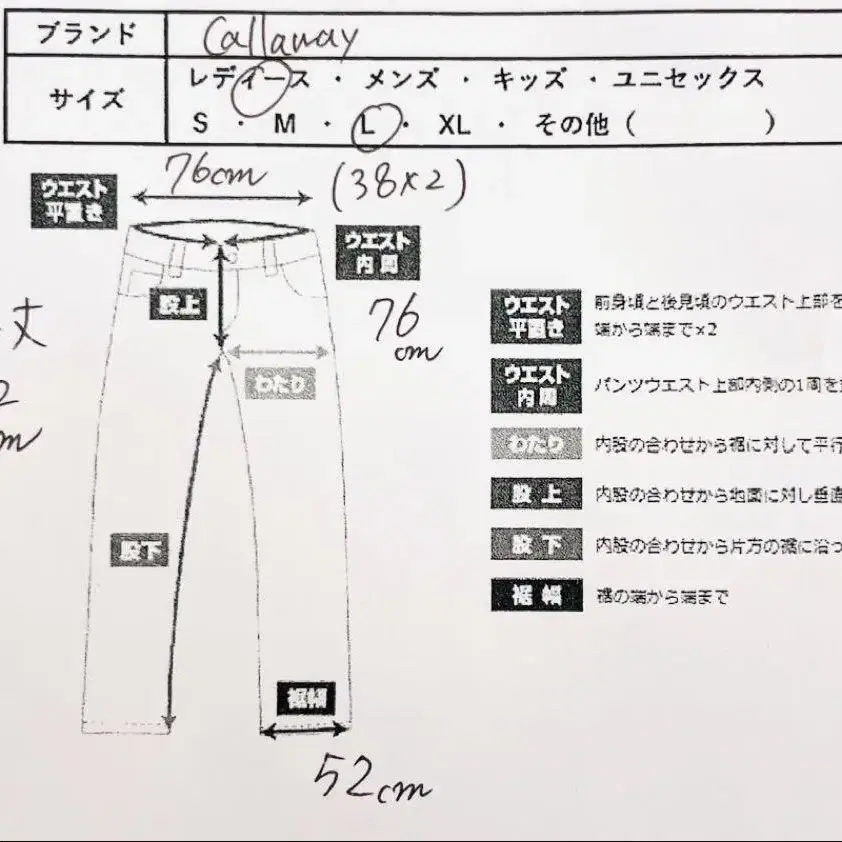 ブランド Callaway
サイズ レディース ・ メンズ ・ キッズ ・ ユニセックス
S ・ M ・ L ・ XL ・ その他 ( )
76cm (38×2)
ウエスト
平置き
ウエスト
内周
76
cm
股上
わたり
丈
2
股下
裾幅
52cm
ウエスト
平置き
前身頃と後見頃のウエスト上部を
端から端まで×2
ウエスト
内周
パンツウエスト上部内側の1周を
わたり 内股の合わせから裾に対して平行
股上 内股の合わせから地面に対し垂直
股下 内股の合わせから片方の裾に沿っ
裾幅 裾の端から端まで